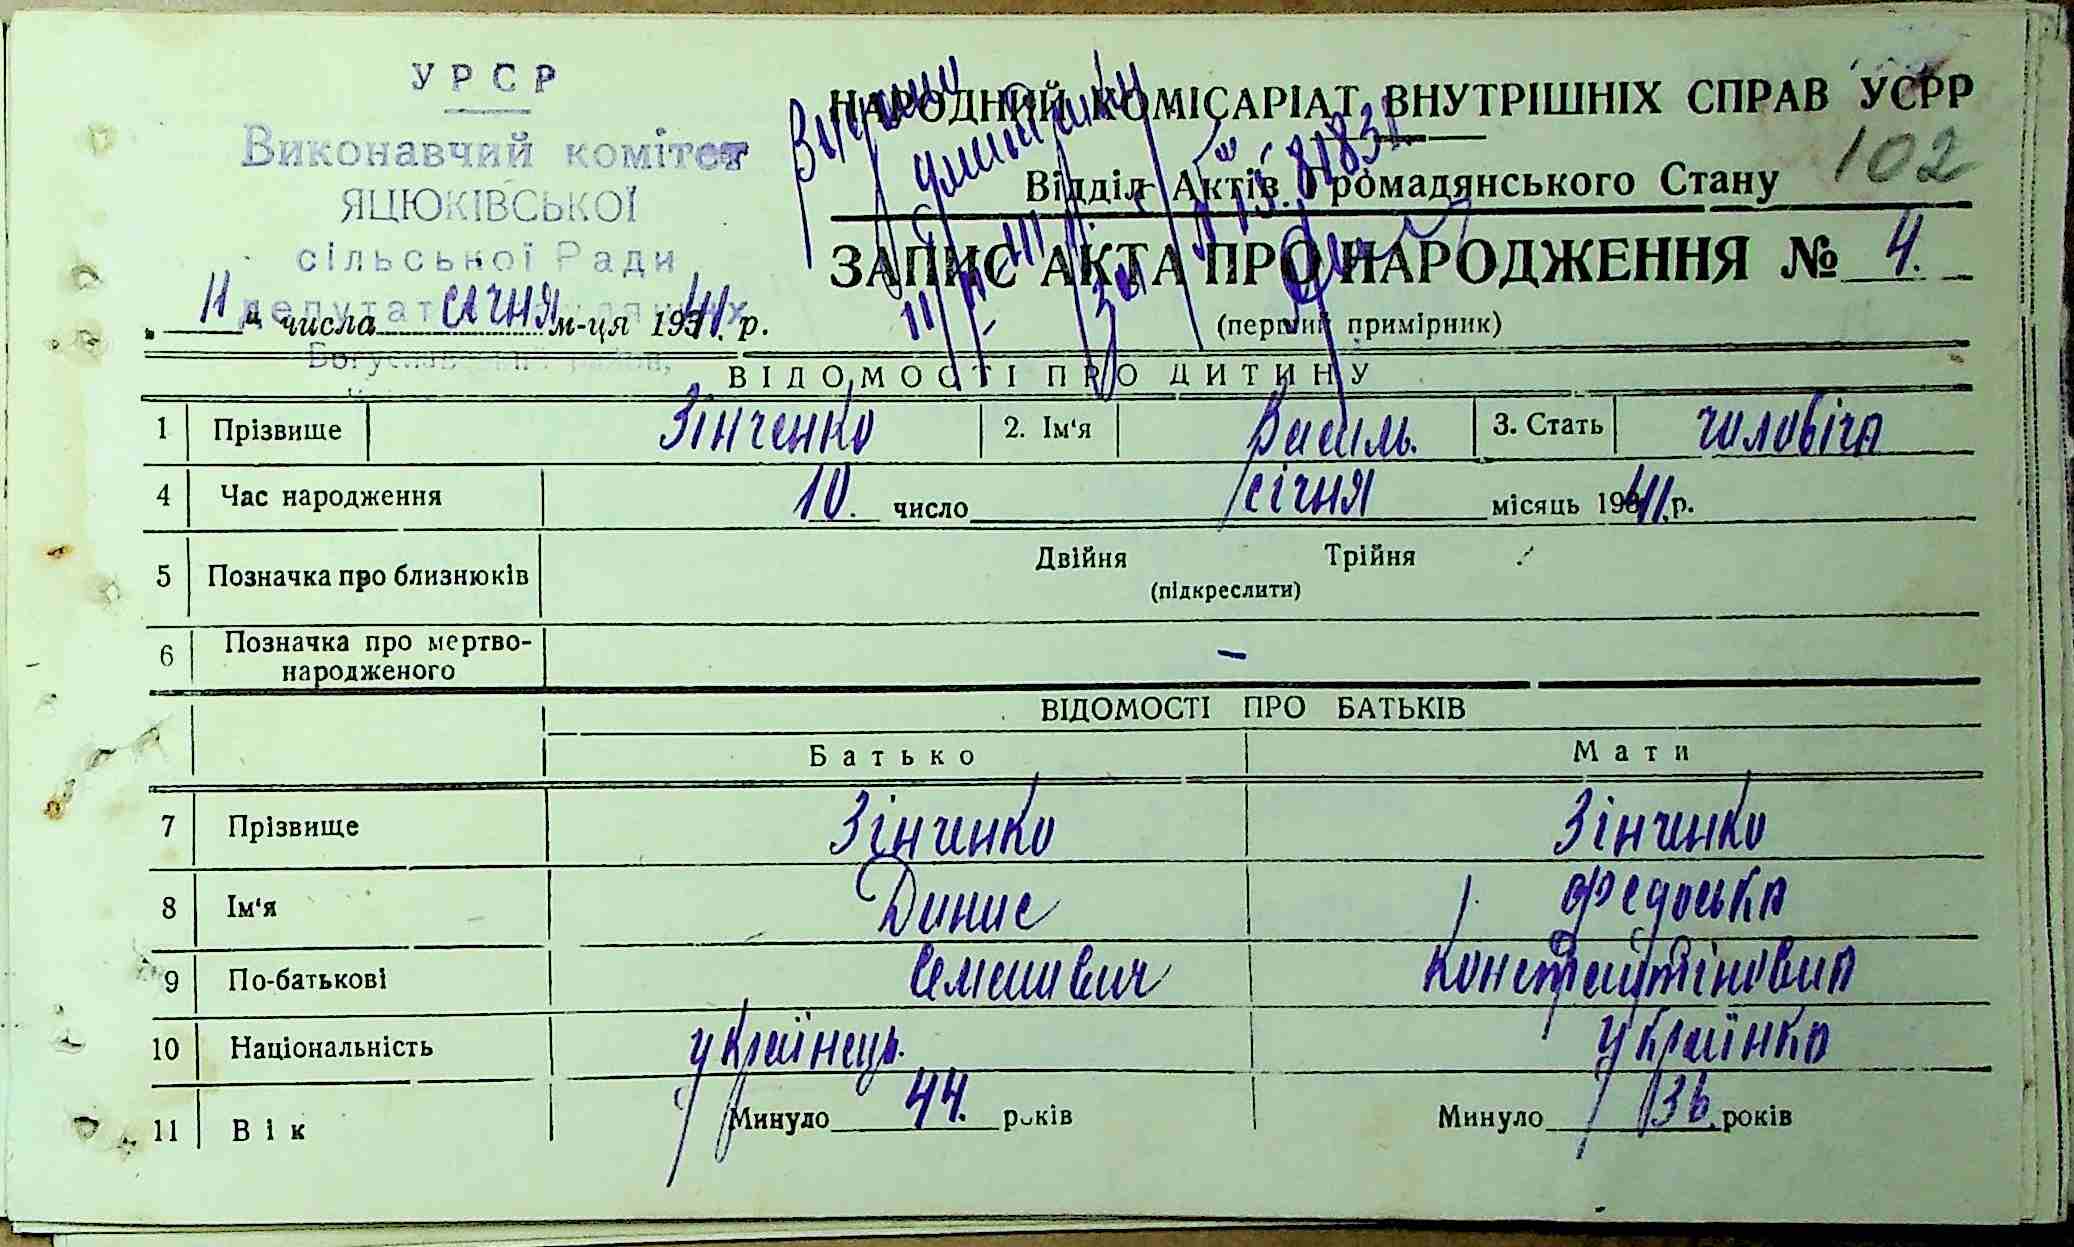 УРСР
Виконавчий комітет
ЯЦЮКІВСЬКОЇ
сільської Ради
депутат
Богуслав
НАРОДНИЙ КОМІСАРІАТ ВНУТРІШНІХ СПРАВ УСРР
102
Відділ Актів Громадянського Стану
ЗАПИС АКТА ПРО НАРОДЖЕННЯ № 4.
(перший примірник)
11 " числа січня м-ця 1941 р.
ВІДОМОСТІ ПРО ДИТИНУ
1 Прізвище Зінченко 2. Ім'я Василь. 3. Стать чоловіча
4 Час народження 10. число січня місяць 1941 р.
5 Позначка про близнюків Двійня Трійня
(підкреслити)
6 Позначка про мертво-
народженого –
ВІДОМОСТІ ПРО БАТЬКІВ
Батько Мати
7 Прізвище Зінченко Зінченко
8 Ім'я Динис Федоська
9 По-батькові Семенович Константіновна
10 Національність українець. українка
11 Вік Минуло 44. років Минуло 36. років